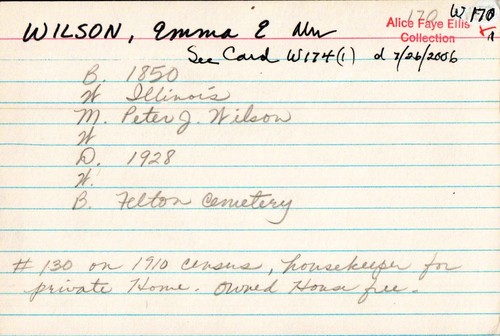 170 W 170
WILSON, Emma E Mrs
Alice Faye Ellis
Collection
See Card W174(1) d 7/26/2006
B. 1850
W Illinois
M. Peter J. Wilson
W
D. 1928
W.
B. Felton Cemetery
# 130 on 1910 census, housekeeper for
private Home. Owned House free.